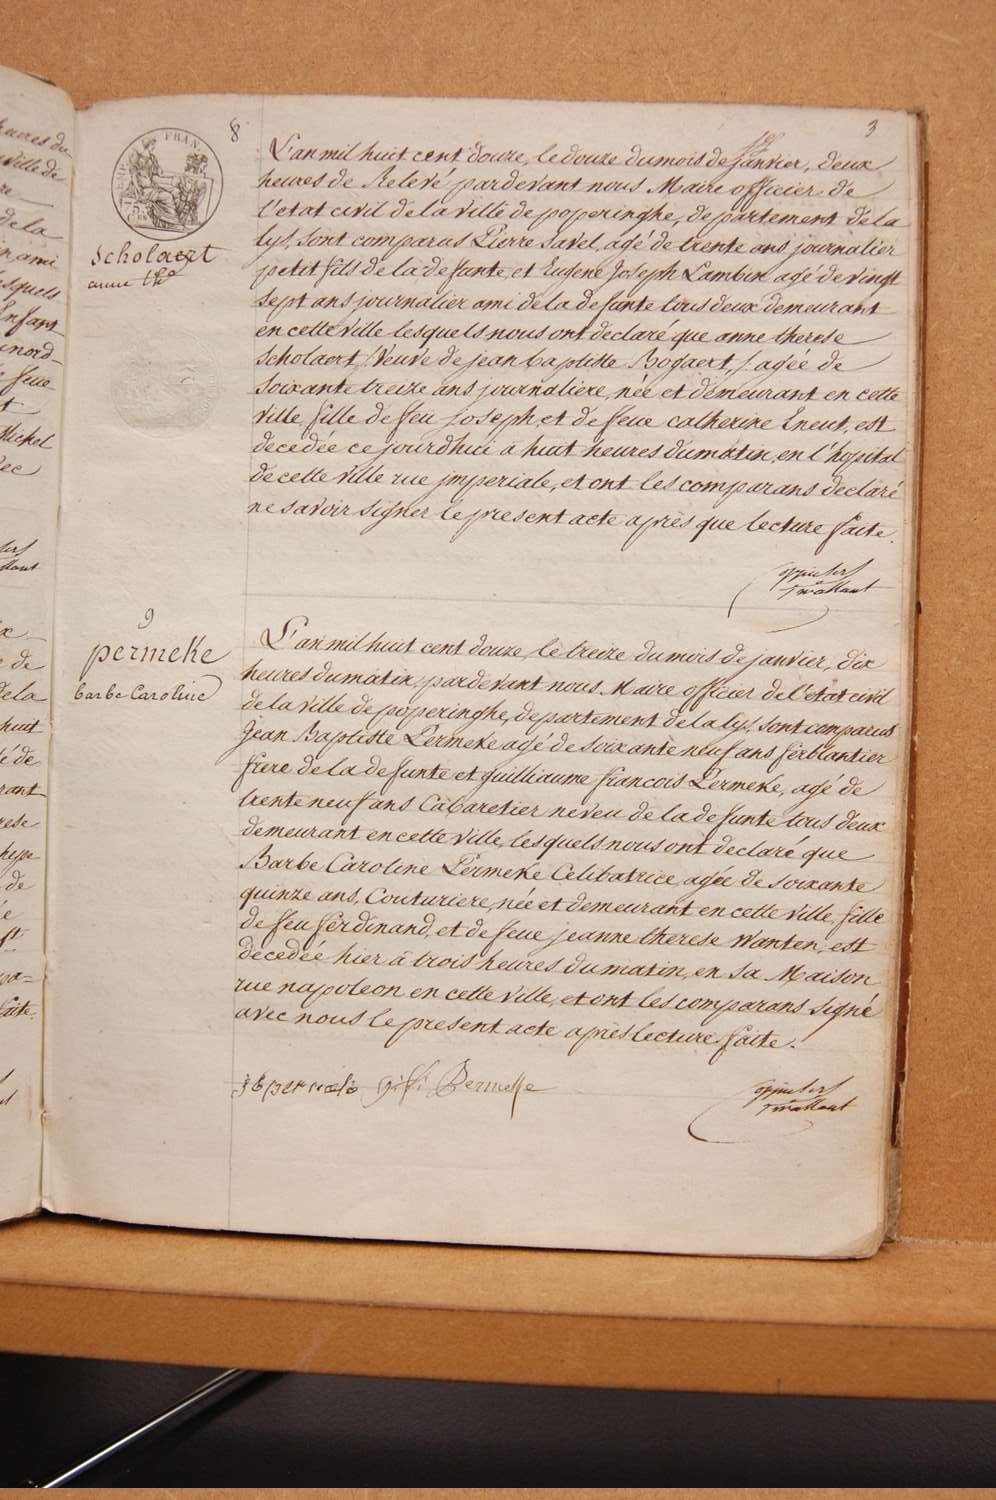 3
8
FRAN.
Scholaert
anne the
L'an mil huit cent douze, le douze du mois de janvier, deux
heures de Relevé par devant nous Maire officier de
l'etat civil de la ville de poperinghe, departement de la
lys, sont comparus Pierre Savel, agé de trente ans journalier
petit fils de la defunte, et Eugene Joseph Lambin agé de vingt
sept ans journalier ami de la defunte tous deux demeurant
en cette ville lesquels nous ont declaré que anne therese
Scholaert, (Veuve de jean baptiste Bogaert,) agée de
soixante treize ans journaliere, née et demeurant en cette
ville, fille de feu Joseph, et de feue catherine Eneut, est
decedée ce jourdhui a huit heures du matin, en l'hopital
de cette ville rue jmperiale, et ont les comparans declaré
ne savoir signer le present acte après que lecture faite.
9
permeke
barbe Caroline
L'an mil huit cent douze, le treize du mois de janvier, dix
heures du matin, par devant nous, Maire officier de l'etat civil
de la ville de poperinghe, departement de la lys, sont comparus
Jean Baptiste Permeke agé de soixante neuf ans ferblantier
frere de la defunte et guilliaume francois Permeke, agé de
trente neuf ans Cabaretier neveu de la defunte tous deux
demeurant en cette ville, lesquels nous ont declaré que
Barbe Caroline Permeke Celibatrice, agée de soixante
quinze ans, Couturiere, née et demeurant en cette ville, fille
de feu ferdinand, et de feue jeanne therese Wanten, est
decedée hier à trois heures du matin, en sa Maison
rue napoleon en cette ville, et ont les comparans signé
avec nous le present acte après lecture faite.